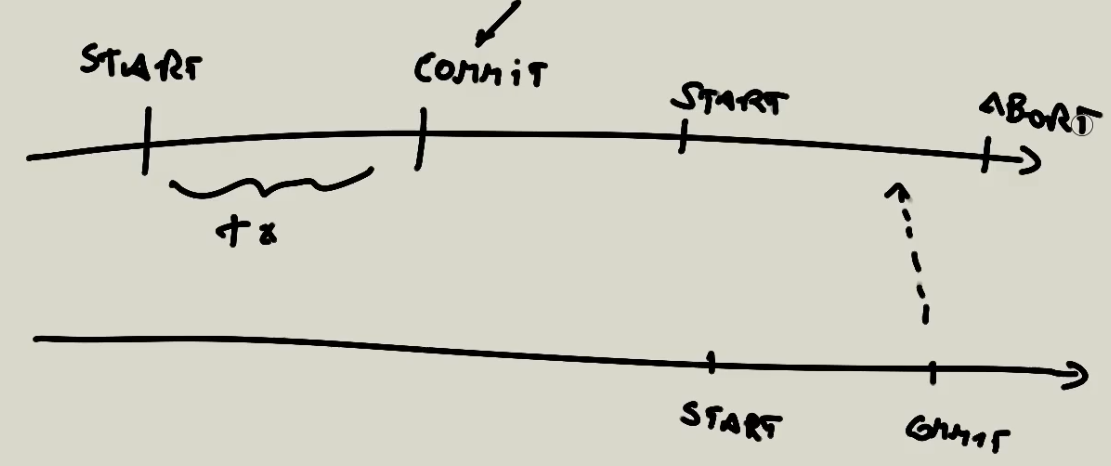 START
COMMIT
START
ABORT
tx
START
COMMIT